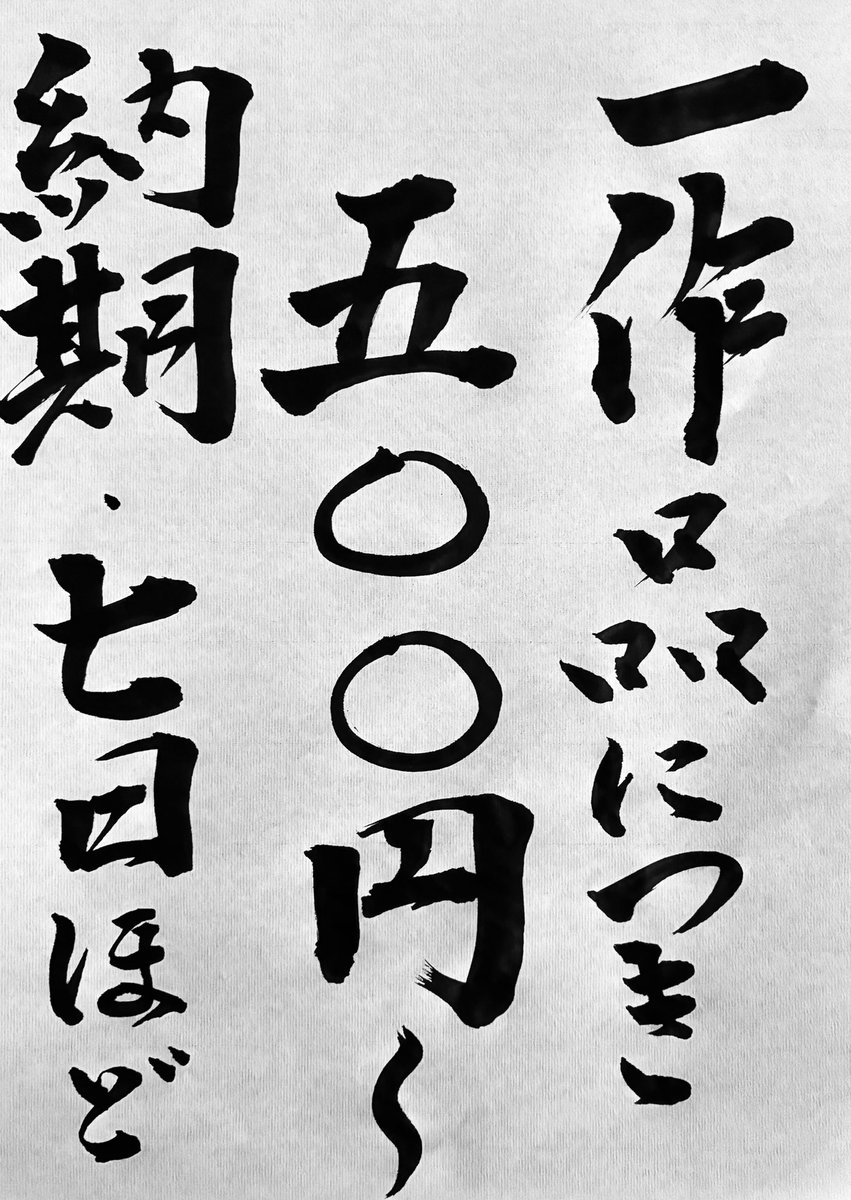 一作品につき
五〇〇円〜
納期・七日ほど